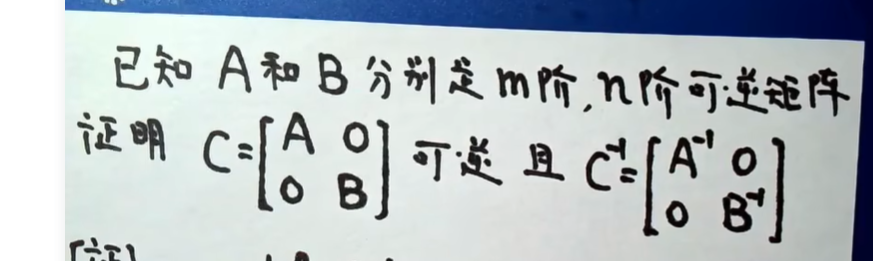 已知 A 和 B 分别是 m阶,n阶可逆矩阵
证明 C=[A 0 0 B] 可逆 且 C⁻¹=[A⁻¹ 0 0 B⁻¹]
[证]